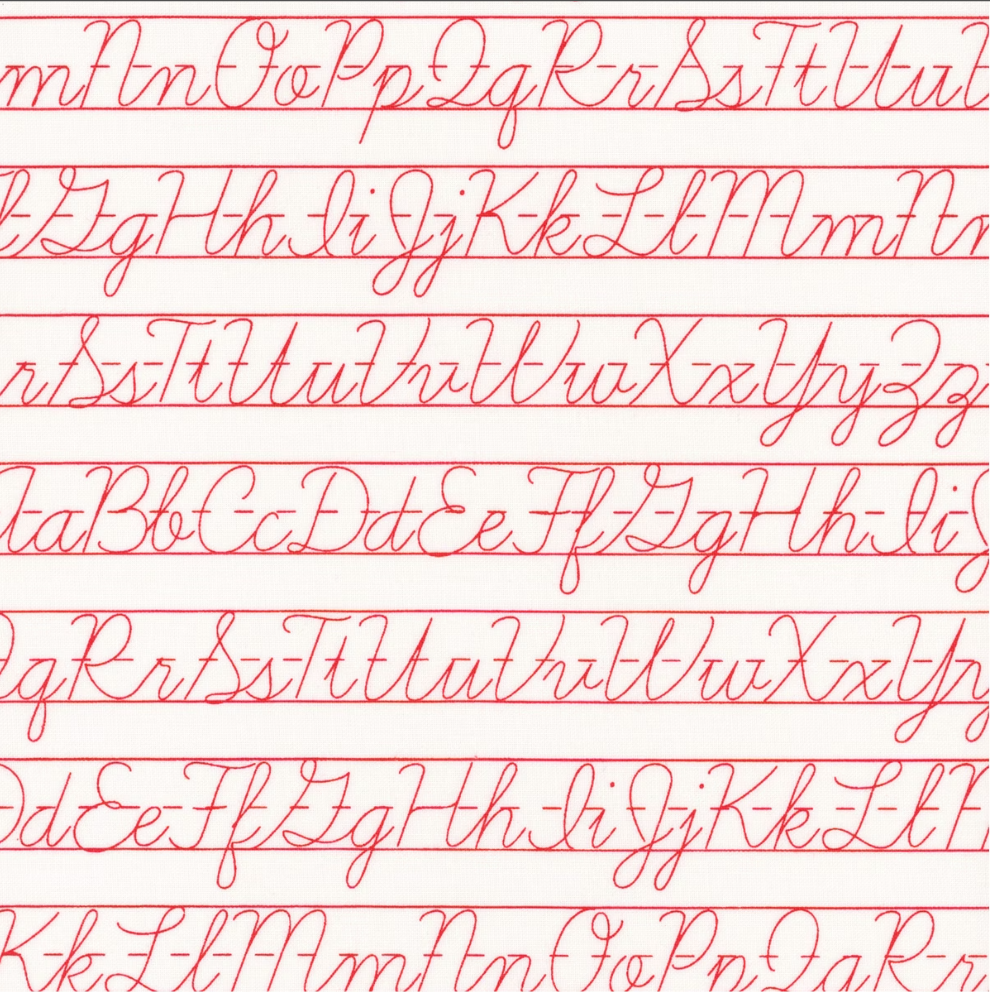 mNnOoPpQqRrSsTtUuV
fGgHhIiJjKkLlMmNn
rSsTtUuVvWwXxYyZz
AaBbCcDdEeFfGgHhIiJ
QqRrSsTtUuVvWwXxYy
DdEeFfGgHhIiJjKkLlM
KkLlMmNnOoPpQqRr